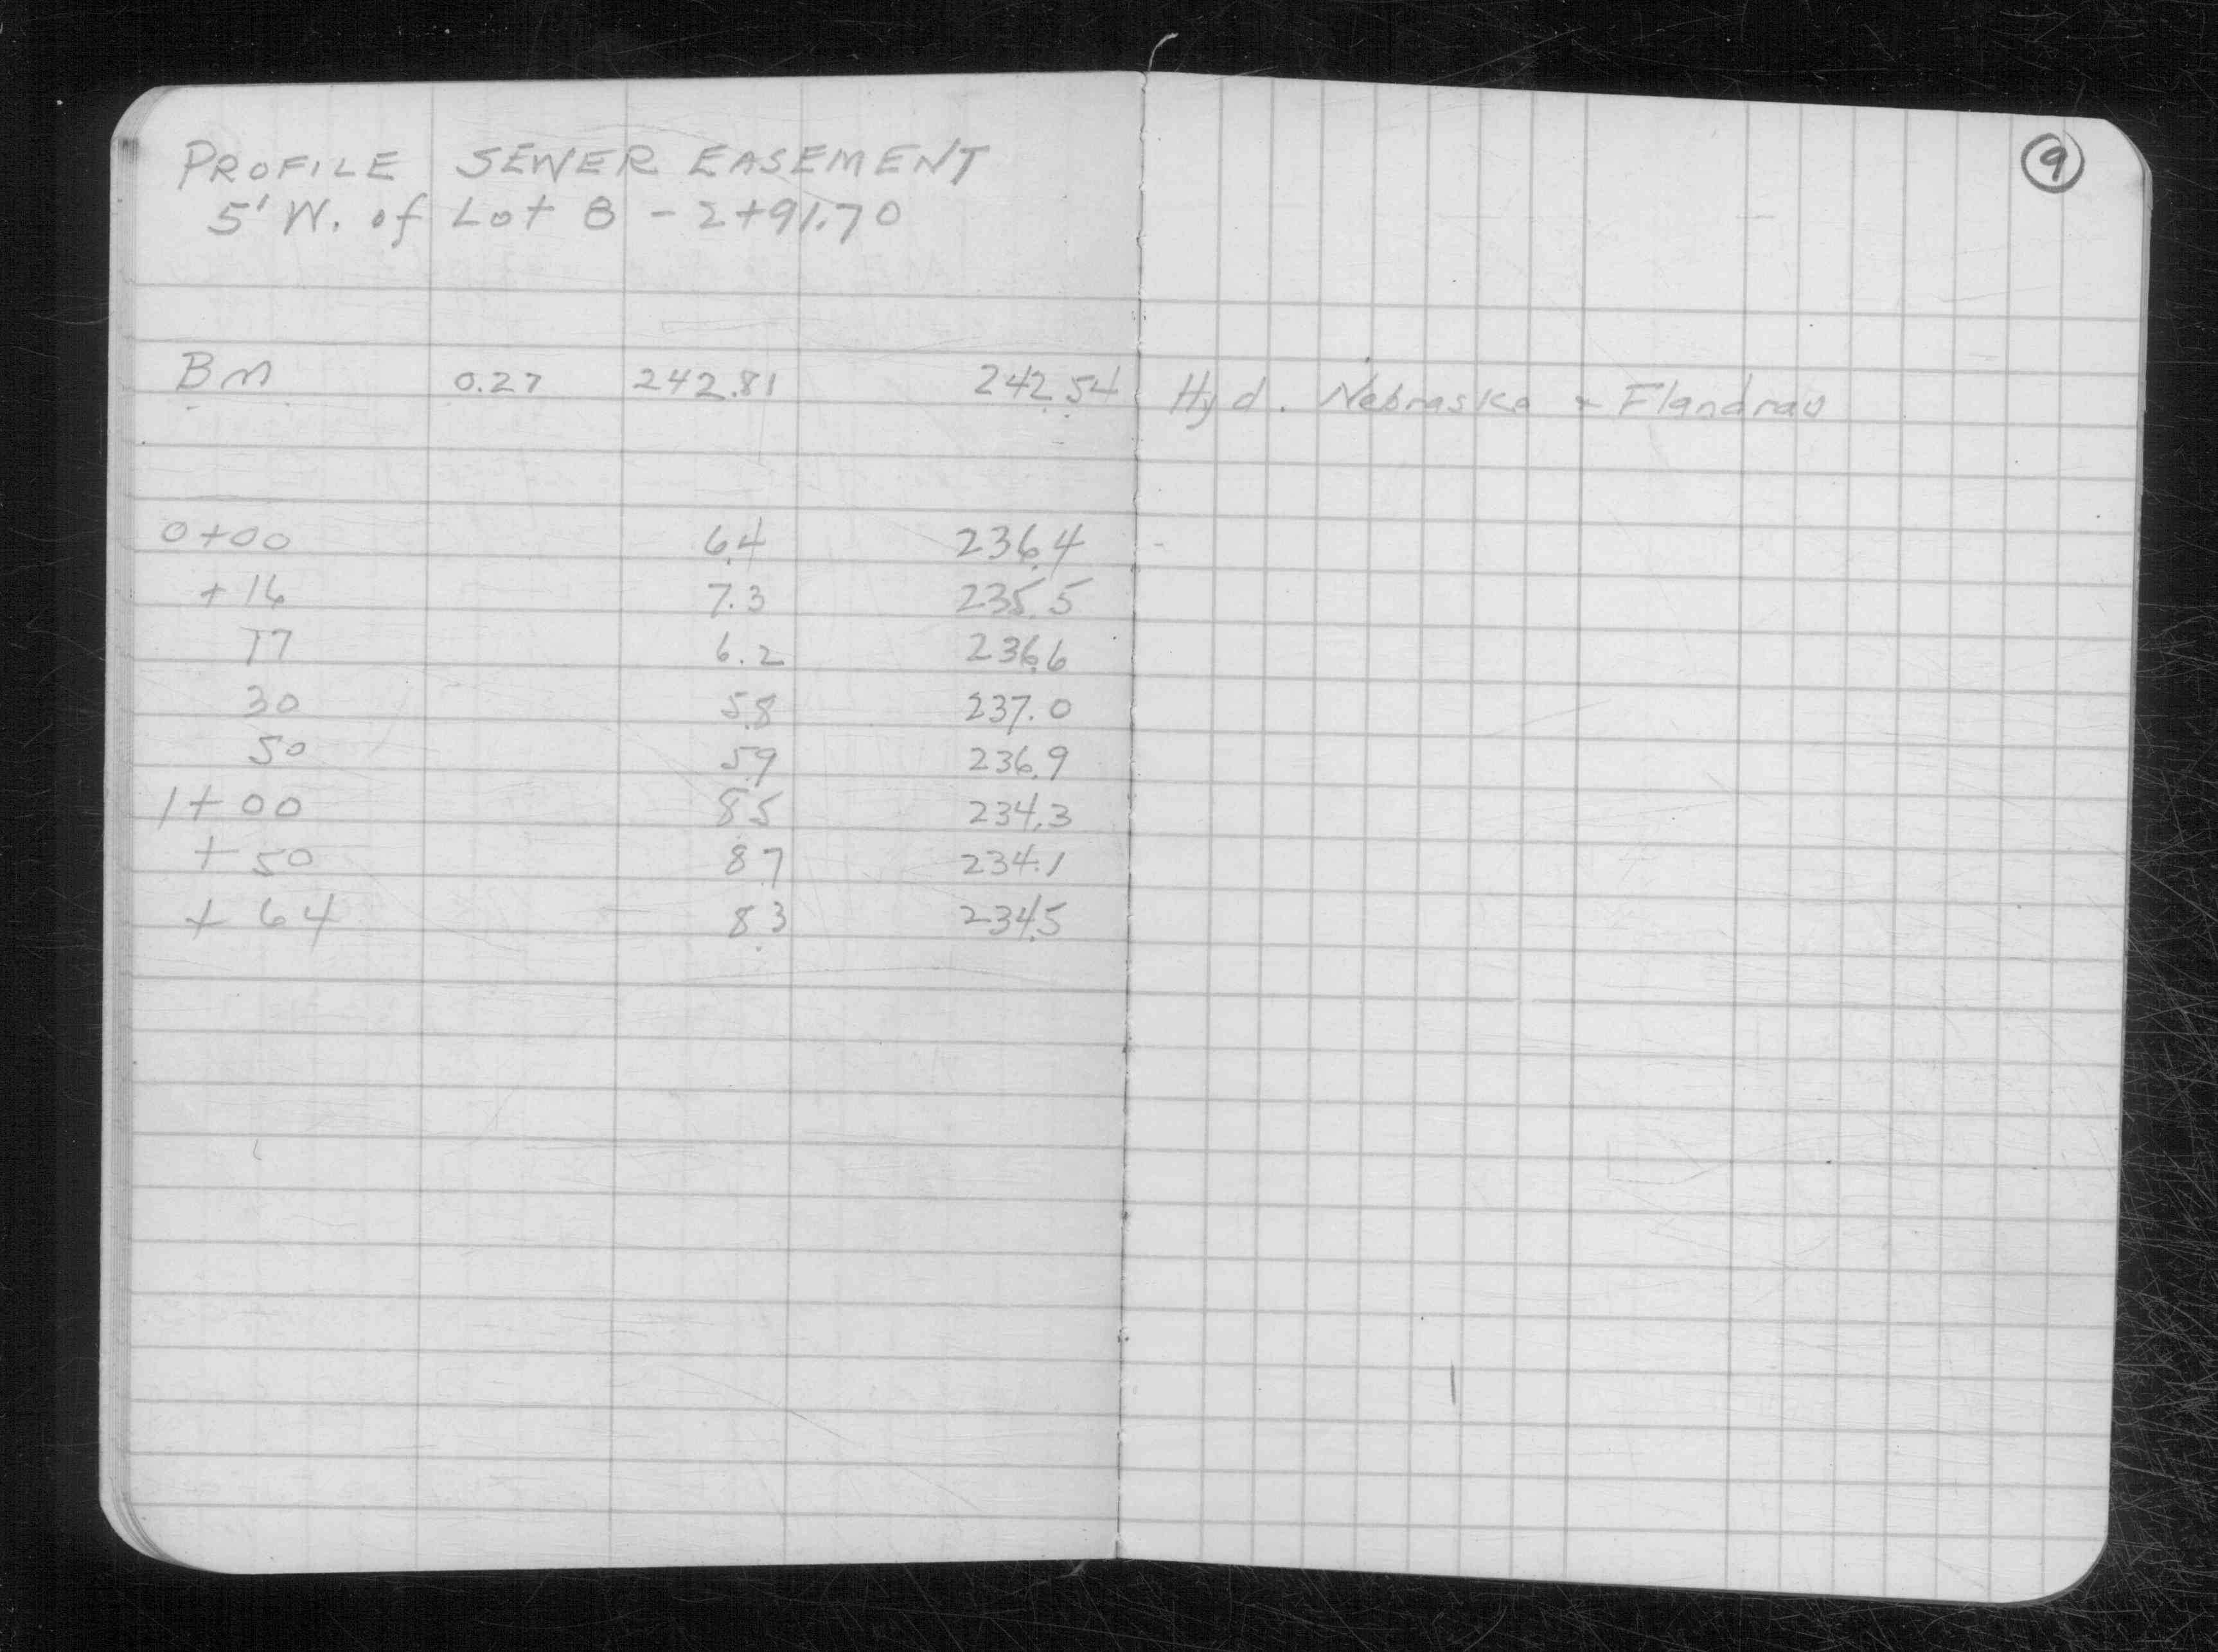 PROFILE SEWER EASEMENT
5' W. of Lot 8 - 2+91.70
9
BM 0.27 242.81 242.54 Hyd. Nebraska & Flandrau
0+00 6.4 236.4
+16 7.3 235.5
17 6.2 236.6
30 5.8 237.0
50 5.9 236.9
1+00 8.5 234.3
+50 8.7 234.1
+64 8.3 234.5